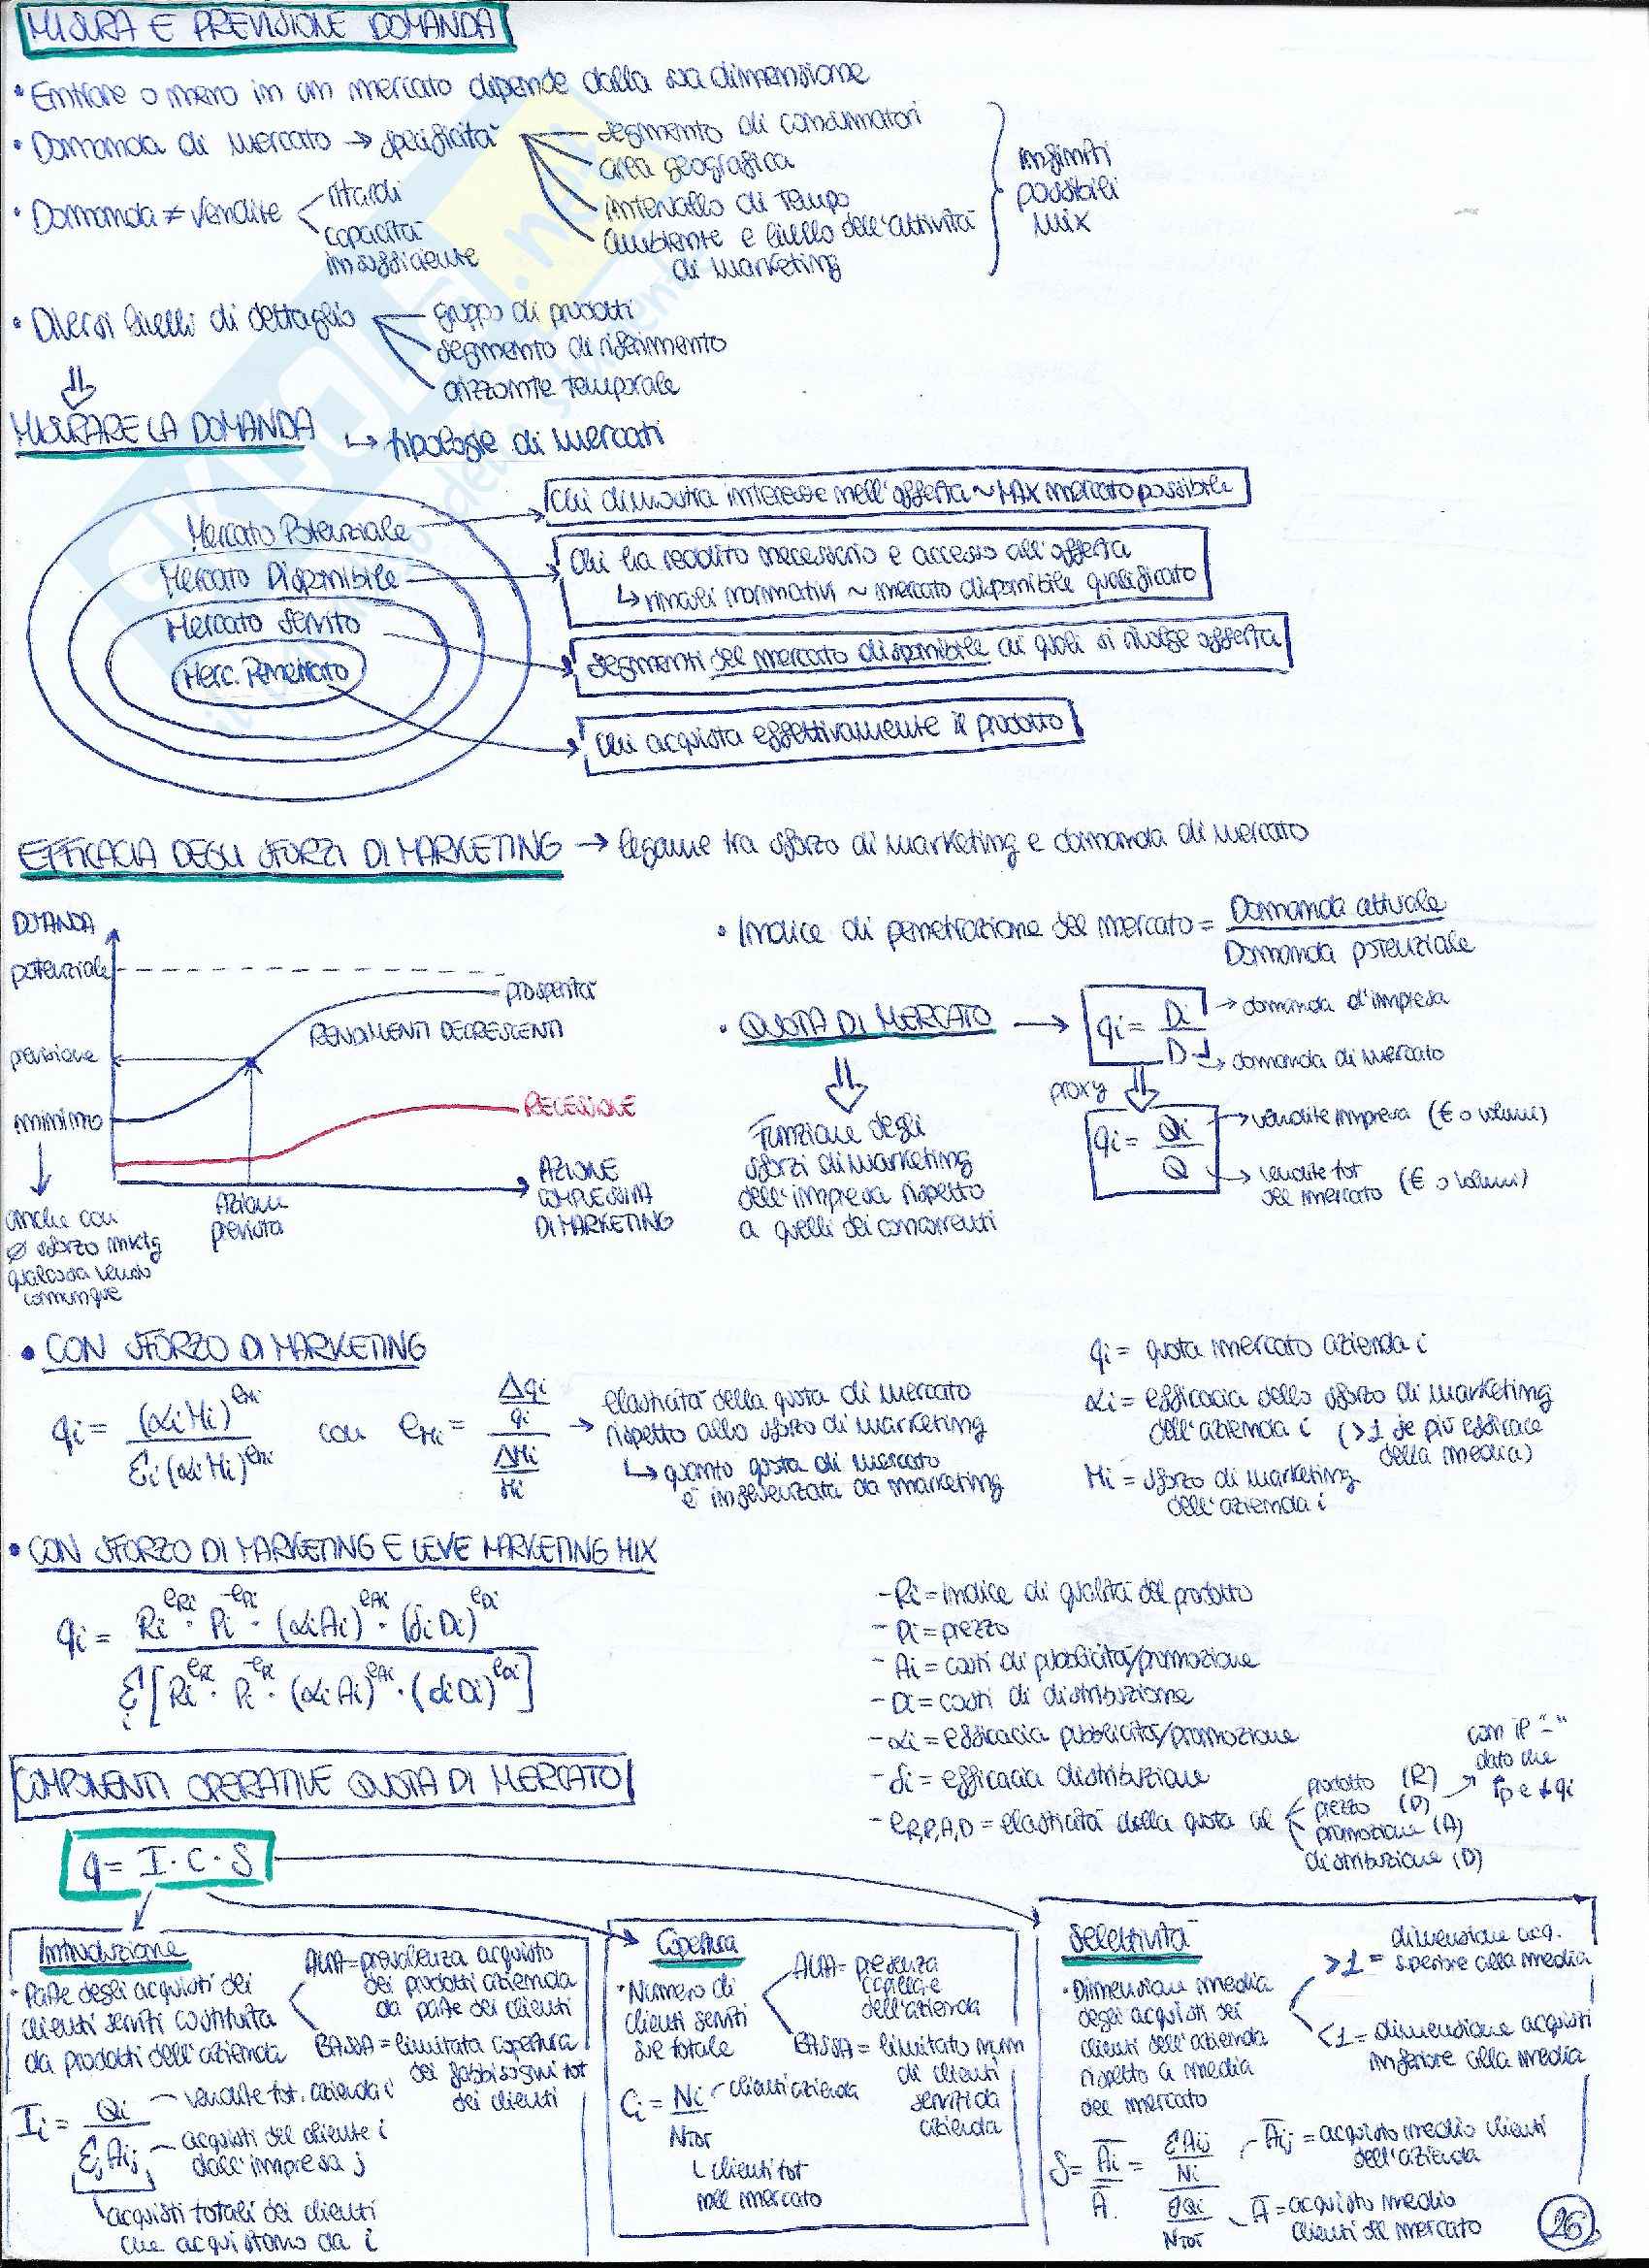 MISURA E PREVISIONE DOMANDA
• Entrare o meno in un mercato dipende dalla sua dimensione
• Domanda di mercato → specificità
segmento di consumatori
area geografica
intervallo di tempo
ambiente e livello dell'attività
di marketing
infiniti
possibili
mix
• Domanda ≠ vendite
ritardi
capacità
insufficiente
• Diversi livelli di dettaglio
gruppo di prodotti
segmento di riferimento
orizzonte temporale
MISURARE LA DOMANDA ↳ tipologie di mercati
Mercato Potenziale
Chi dimostra interesse nell'offerta ~ MAX mercato possibile
Mercato Disponibile
Chi ha reddito necessario e accesso all'offerta
↳ vincoli normativi ~ mercato disponibile qualificato
Mercato Servito
Segmenti del mercato disponibile ai quali si rivolge offerta
Merc. Penetrato
Chi acquista effettivamente il prodotto
EFFICACIA DEGLI SFORZI DI MARKETING → legame tra sforzo di marketing e domanda di mercato
DOMANDA
potenziale
prosperità
RENDIMENTI DECRESCENTI
previsione
minimo
RECESSIONE
AZIONE
COMPLESSIVA
DI MARKETING
Azione
prevista
anche con
Ø sforzo mktg
qualcosa vendo
comunque
• Indice di penetrazione del mercato = Domanda attuale
Domanda potenziale
• QUOTA DI MERCATO → qi = Di → domanda d'impresa
D → domanda di mercato
proxy
qi = Qi → vendite impresa (€ o volumi)
Q → vendite tot
del mercato (€ o volumi)
Funzione degli
sforzi di marketing
dell'impresa rispetto
a quelli dei concorrenti
• CON SFORZO DI MARKETING
qi = (αiMi)^eMi / Σi(αiMi)^eMi con eMi = (Δqi/qi) / (ΔMi/Mi)
→ elasticità della quota di mercato
rispetto allo sforzo di marketing
↳ quanto quota di mercato
è influenzata da marketing
qi = quota mercato azienda i
αi = efficacia dello sforzo di marketing
dell'azienda i (>1 se più efficace
della media)
Mi = sforzo di marketing
dell'azienda i
• CON SFORZO DI MARKETING E LEVE MARKETING MIX
qi = Ri^eRi · Pi^-ePi · (αiAi)^eAi · (δiDi)^eDi
Σi [Ri^eRi · Pi^-ePi · (αiAi)^eAi · (diDi)^eDi]
- Ri = indice di qualità del prodotto
- Pi = prezzo
- Ai = costi di pubblicità/promozione
- Di = costi di distribuzione
- αi = efficacia pubblicità/promozione
- δi = efficacia distribuzione
- eR,P,A,D = elasticità della quota al
prodotto (R)
prezzo (P)
promozione (A)
distribuzione (D)
con il "-"
dato che
↑p e ↓qi
COMPONENTI OPERATIVE QUOTA DI MERCATO
q = I · C · S
Introduzione
• Parte degli acquisti dei
clienti serviti costituita
da prodotti dell'azienda
ALTA = prevalenza acquisto
dei prodotti azienda
da parte dei clienti
BASSA = limitata copertura
dei fabbisogni tot
dei clienti
Ii = Qi — vendite tot. azienda i
Σj Aij — acquisti del cliente i
dall'impresa j
acquisti totali dei clienti
che acquistano da i
Copertura
• Numero di
clienti serviti
sul totale
ALTA = presenza
capillare
dell'azienda
BASSA = limitato num
di clienti
serviti da
azienda
Ci = Ni — clienti azienda
NTOT
clienti tot
nel mercato
Selettività
• Dimensione media
degli acquisti dei
clienti dell'azienda
rispetto a media
del mercato
>1 = dimensione acq.
superiore alla media
<1 = dimensione acquisti
inferiore alla media
S = Āi / Ā = (ΣAij / Ni) / (ΣQi / NTOT)
Āij = acquisto medio clienti
dell'azienda
Ā = acquisto medio
clienti del mercato
26